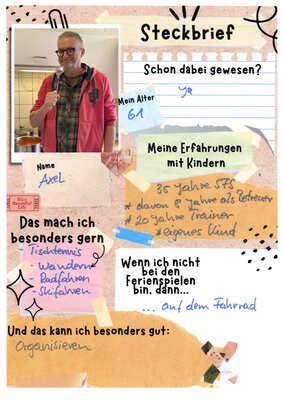 Steckbrief
Schon dabei gewesen?
ja
Mein Alter
61
Name
Axel
Meine Erfahrungen
mit Kindern
35 Jahre SFS
* davon 8 Jahre als Betreuer
* 20 Jahre Trainer
* eigenes Kind
Das mach ich
besonders gern
- Tischtennis
- Wandern
- Radfahren
- Skifahren
Wenn ich nicht
bei den
Ferienspielen
bin, dann...
... auf dem Fahrrad
Und das kann ich besonders gut:
Organisieren